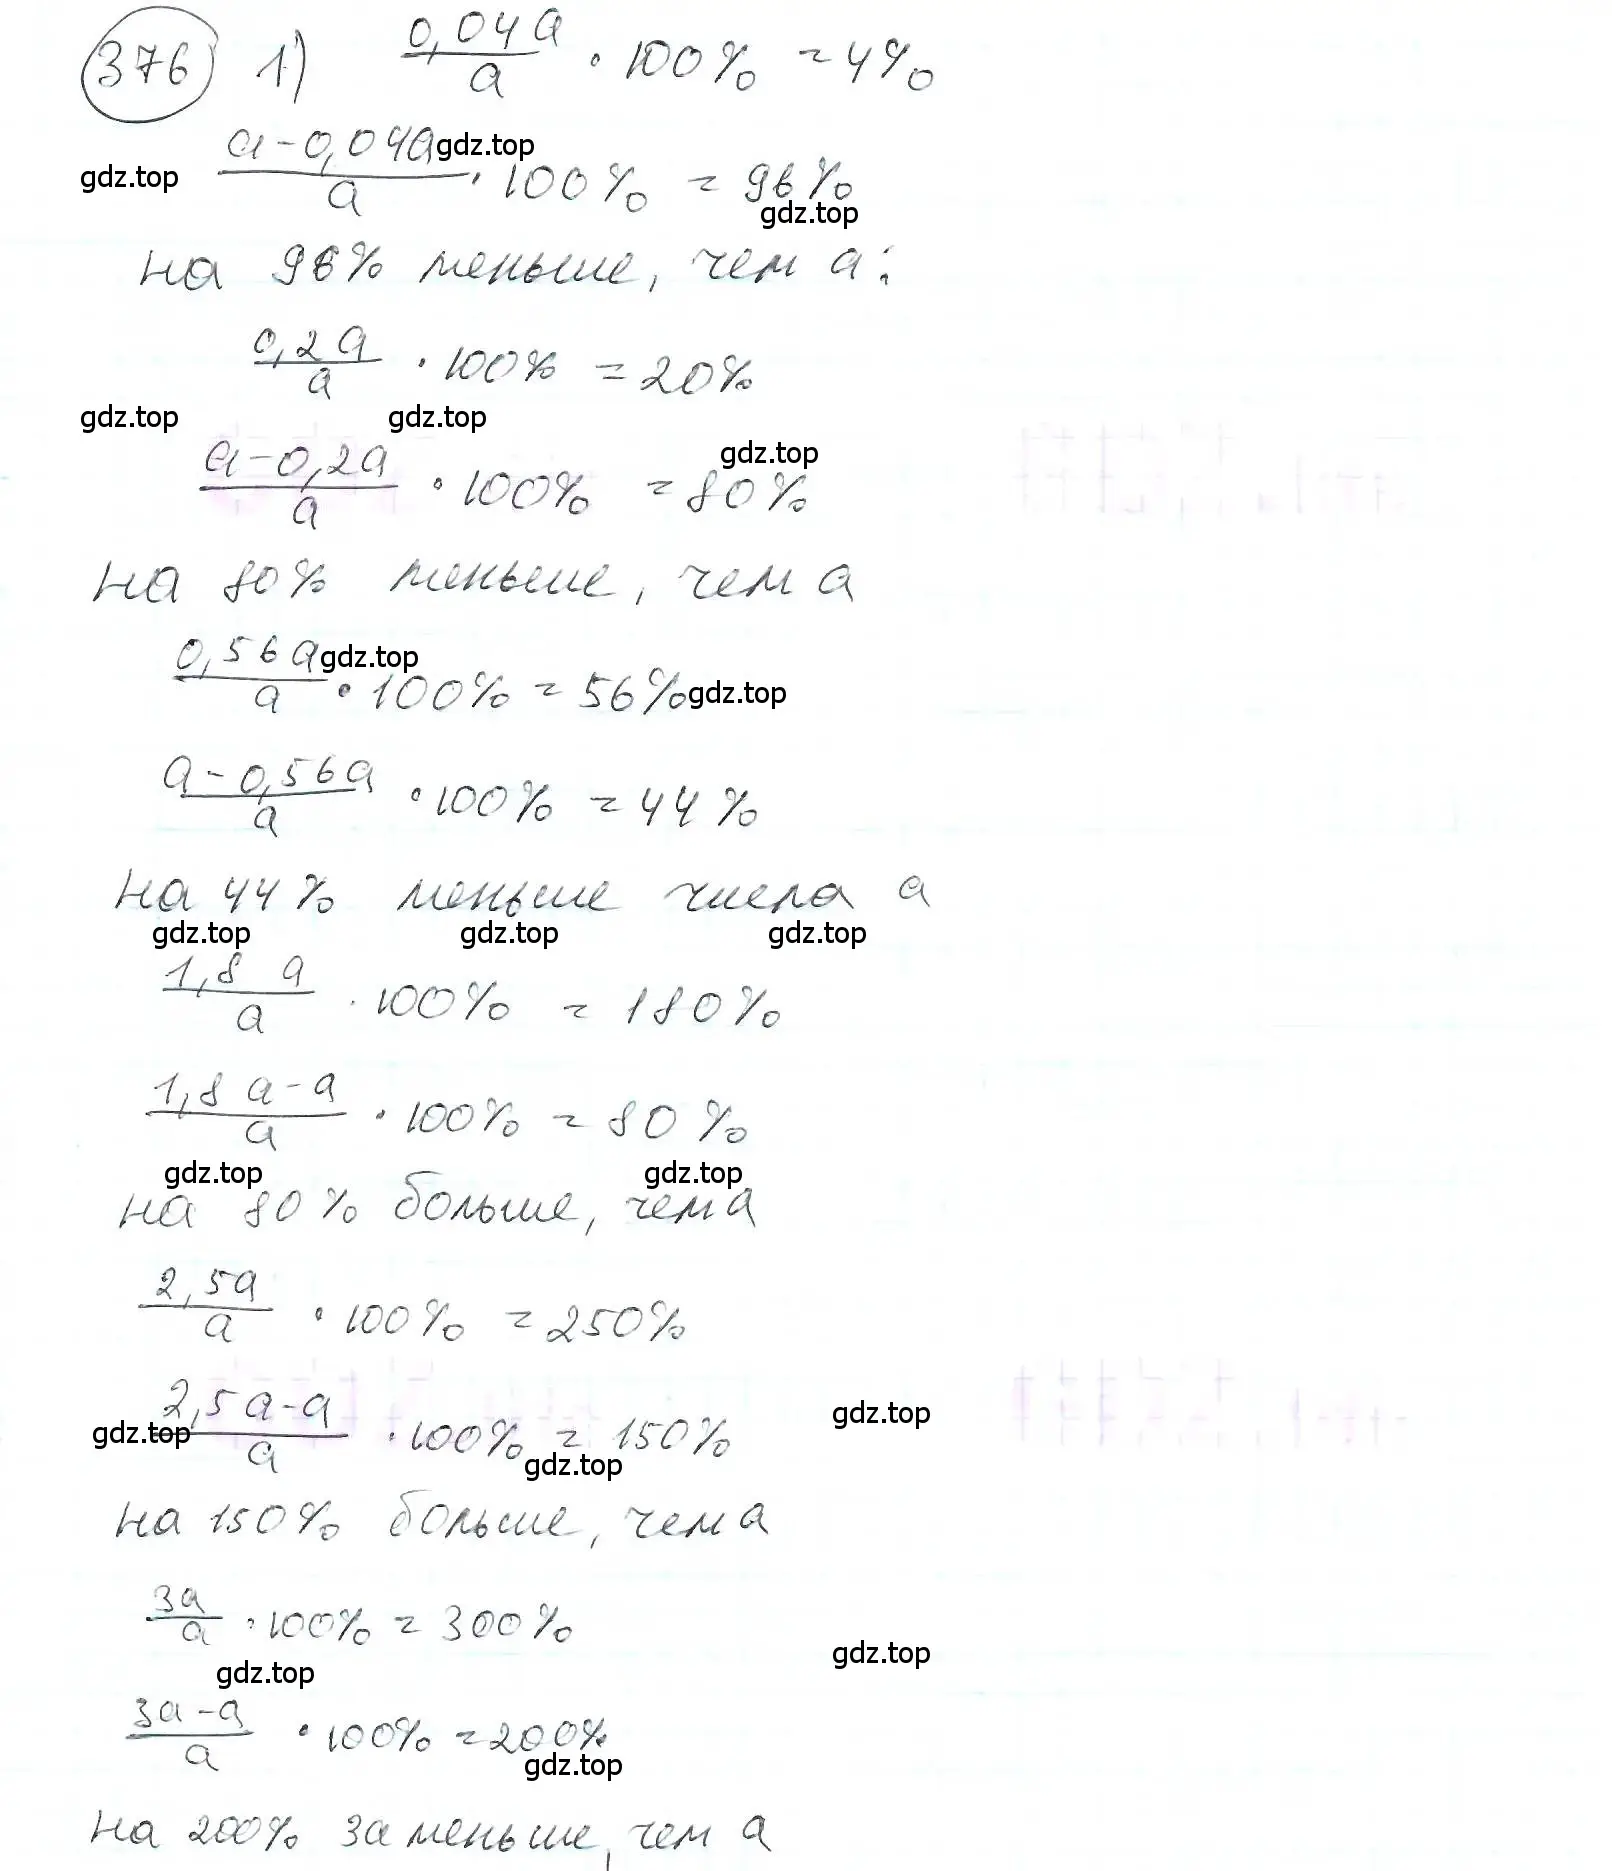 376 1) 0,04a/a · 100% = 4%
a-0,04a/a · 100% = 96%
gdz.top
gdz.top
gdz.top
на 96% меньше, чем а:
0,2a/a · 100% = 20%
gdz.top gdz.top
a-0,2a/a · 100% = 80%
gdz.top
на 80% меньше, чем а
0,56a/a · 100% = 56%
gdz.top
gdz.top
a-0,56a/a · 100% = 44%
на 44% меньше числа а
gdz.top gdz.top gdz.top
1,8 a/a · 100% = 180%
1,8 a-a/a · 100% = 80%
gdz.top gdz.top
на 80% больше, чем а
2,5a/a · 100% = 250%
2,5 a-a/a · 100% = 150%
gdz.top
gdz.top
gdz.top
на 150% больше, чем а
3a/a · 100% = 300%
gdz.top
gdz.top
3a-a/a · 100% = 200%
gdz.top
на 200% за меньше, чем а